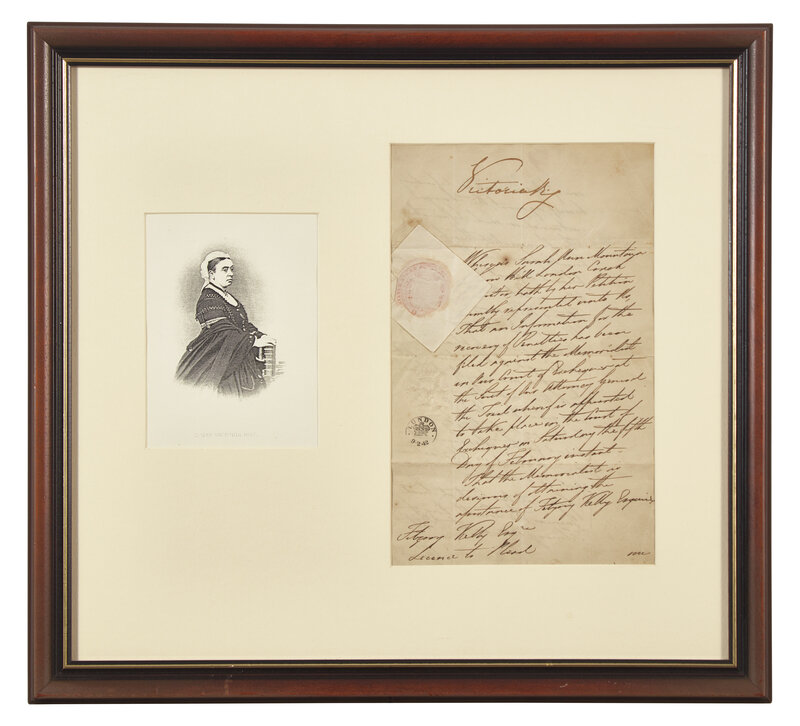 Victoria R
Whereas Sarah Ann Mountain
Hill London Coach
hath by her Petition
humbly represented unto Us,
That an Information for the
recovery of Penalties has been
filed against the Memorialist
in Our Court of Exchequer at
the Suit of Our Attorney General
the Trial whereof is appointed
to take place in the Court of
Exchequer on Saturday the fifth
Day of February instant
That the Memorialist is
desirous of obtaining the
assistance of Fitzroy Kelly Esquire
Fitzroy Kelly Esqre
Licence to Plead
LONDON